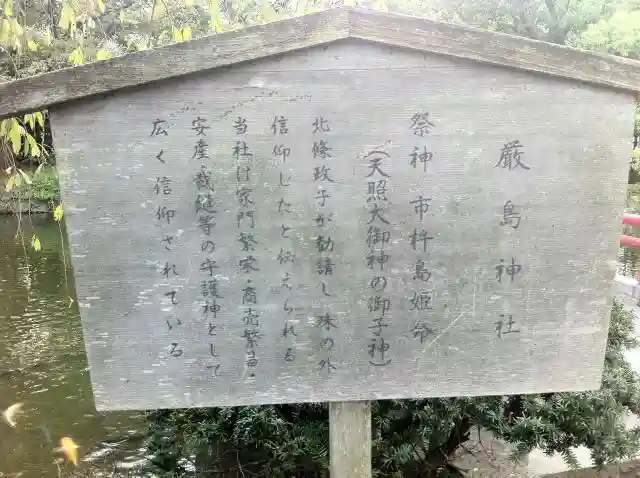 厳島神社
祭神 市杵島姫命
(天照大御神の御子神)
北條政子が勧請し 殊の外
信仰したと伝えられる
当社は家門繁栄・商売繁昌・
安産・裁縫等の守護神として
広く信仰されている